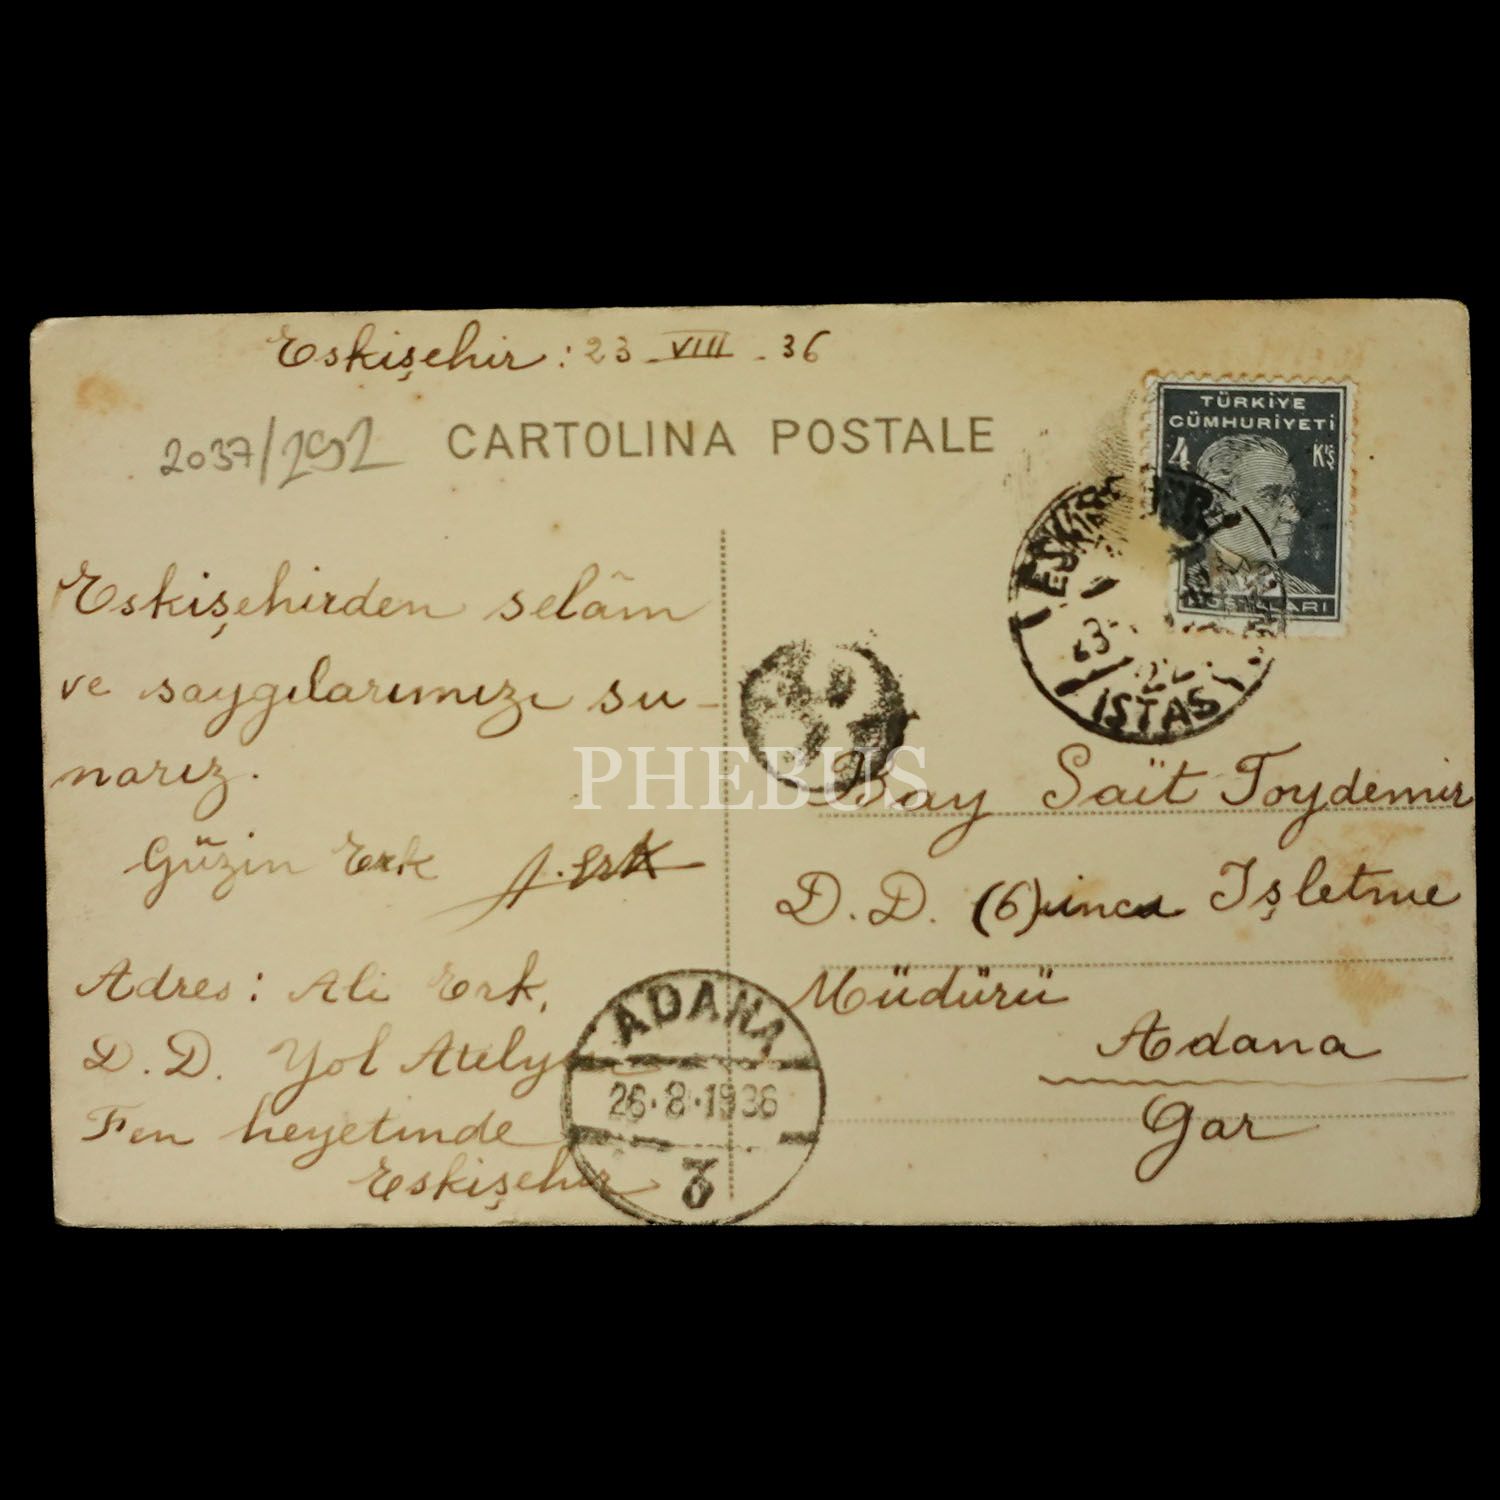 Eskişehir : 23 - VIII - 36
2037/292
CARTOLINA POSTALE
TÜRKİYE
CÜMHURİYETİ
4 Kş
POSTALARI
ESKİŞEHİR
23
ISTAS
Eskişehirden selâm
ve saygılarımızı su-
narız.
Güzin Erk A. Erk
Adres : Ali Erk,
D. D. Yol Atelye
Fen heyetinde
Eskişehir
PHEBUS
Bay Sait Toydemir
D. D. (6) ıncı İşletme
Müdürü
Adana
Gar
ADANA
26·8·1936
3